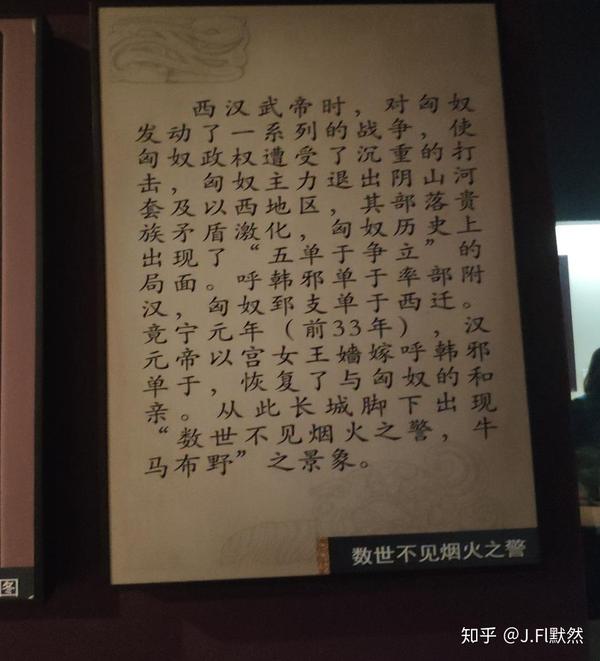 西汉武帝时，对匈奴
发动了一系列的战争，使
匈奴政权遭受了沉重的打
击，匈奴主力退出阴山河
套及以西地区，其部落贵
族矛盾激化，匈奴历史上
出现了“五单于争立”的
局面。呼韩邪单于率部附
汉，匈奴郅支单于西迁。
竟宁元年（前33年），汉
元帝以宫女王嫱嫁呼韩邪
单于，恢复了与匈奴的和
亲。从此长城脚下出现
“数世不见烟火之警，牛
马布野”之景象。
数世不见烟火之警
知乎 @J.Fl默然